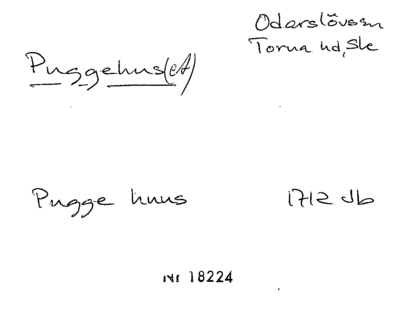 Odarslövssn
Torna hd, Sk
Puggehus(et)
Pugge huus 1712 Jb
Nr 18224